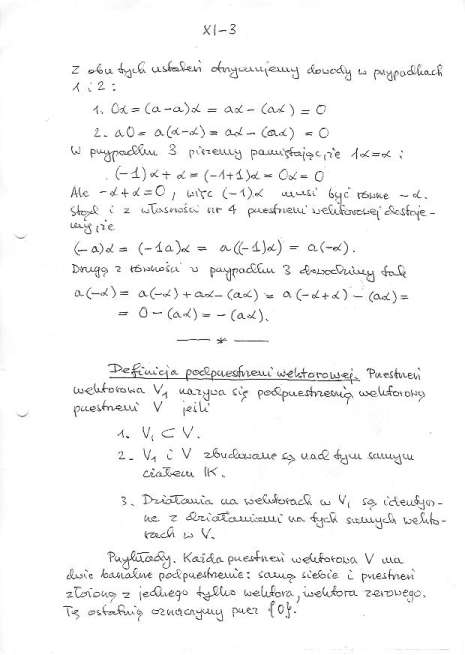 XI-3
Z obu tych ustaleń otrzymujemy dowody w przypadkach
1 i 2:
1. 0α = (a-a)α = aα - (aα) = 0
2. a0 = a(α-α) = aα - (aα) = 0
W przypadku 3 piszemy pamiętając, że 1α=α:
(-1)α + α = (-1+1)α = 0α = 0
Ale -α+α=0, więc (-1)α musi być równe -α.
Stąd i z własności nr 4 przestrzeni wektorowej dostaje-
my, że
(-a)α = (-1a)α = a((-1)α) = a(-α).
Drugą z równości w przypadku 3 dowodzimy tak
a(-α) = a(-α) + aα - (aα) = a(-α+α) - (aα) =
= 0 - (aα) = -(aα).
— * —
Definicja podprzestrzeni wektorowej. Przestrzeń
wektorowa V₁ nazywa się podprzestrzenią wektorową
przestrzeni V jeśli
1. V₁ ⊂ V.
2. V₁ i V zbudowane są nad tym samym
ciałem K.
3. Działania na wektorach w V₁ są identycz-
ne z działaniami na tych samych wekto-
rach w V.
Przykłady. Każda przestrzeń wektorowa V ma
dwie banalne podprzestrzenie: samą siebie i przestrzeń
złożoną z jednego tylko wektora, wektora zerowego.
Tę ostatnią oznaczymy przez {0}.